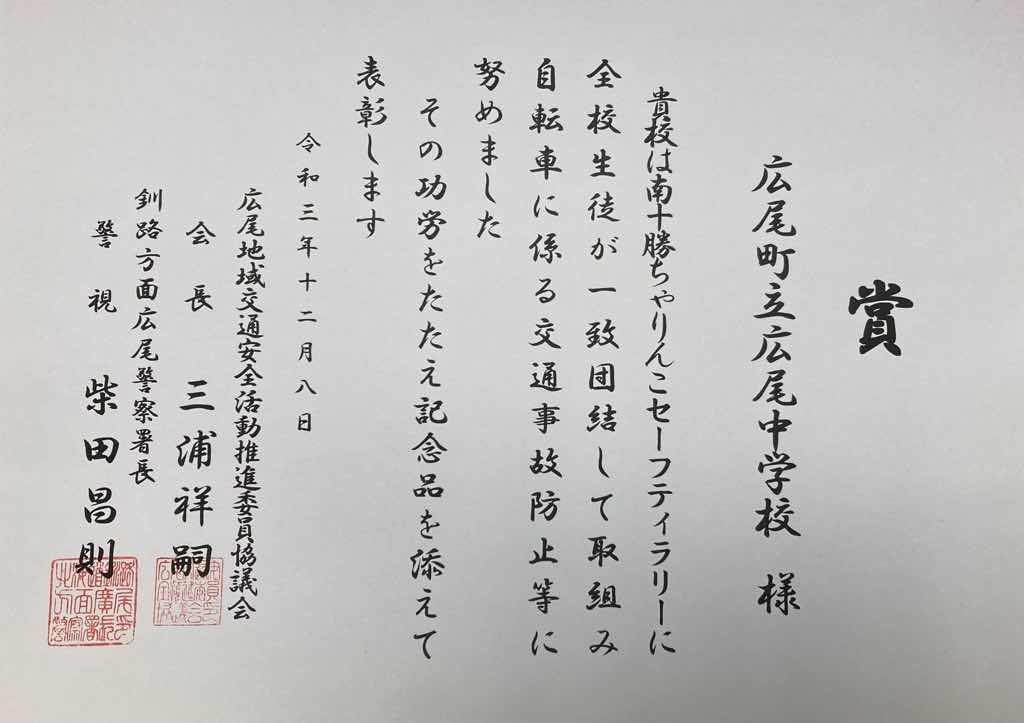 賞
広尾町立広尾中学校 様
貴校は南十勝ちゃりんこセーフティラリーに
全校生徒が一致団結して取組み
自転車に係る交通事故防止等に
努めました
その功労をたたえ記念品を添えて
表彰します
令和三年十二月八日
広尾地域交通安全活動推進委員協議会
会長 三浦祥嗣
釧路方面広尾警察署長
警視 柴田昌則